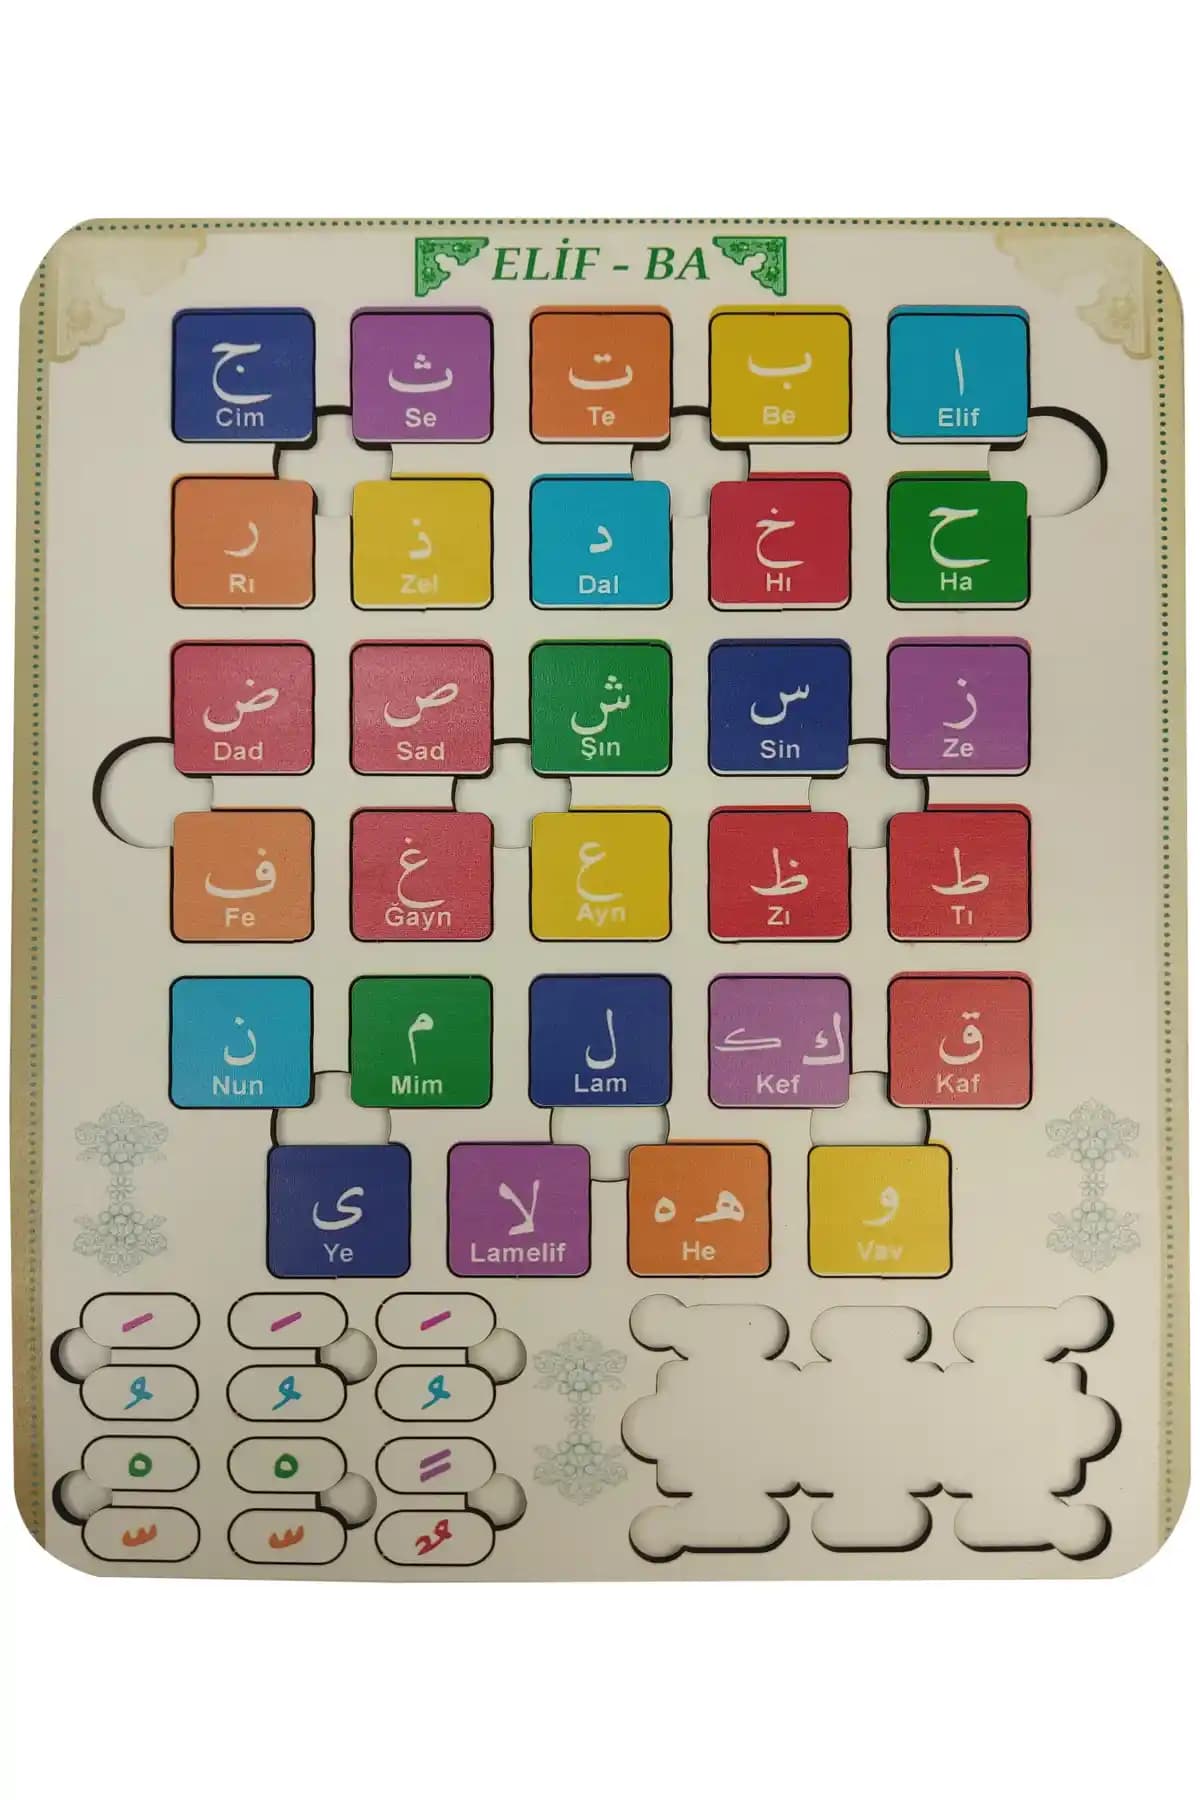 ELİF - BA
ا ب ت ث ج
Elif Be Te Se Cim
ح خ د ذ ر
Ha Hı Dal Zel Rı
ز س ش ص ض
Ze Sin Şın Sad Dad
ط ظ ع غ ف
Tı Zı Ayn Ğayn Fe
ق ك ک ل م ن
Kaf Kef Lam Mim Nun
و هـ ه لا ى
Vav He Lamelif Ye